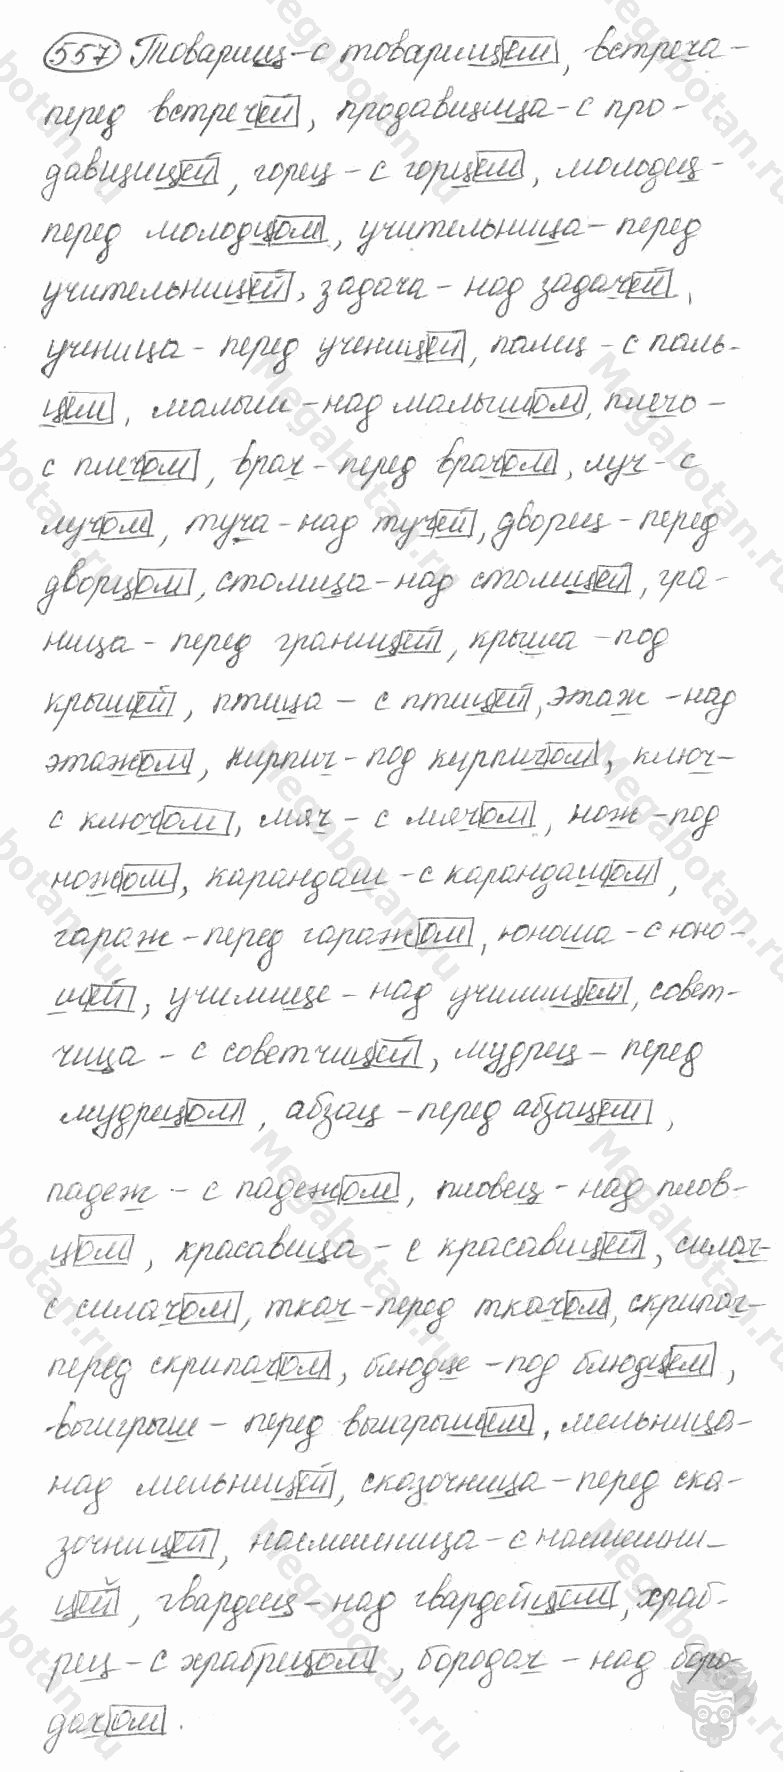 557 Товарищ - с товарищем, встреча -
перед встречей, продавщица - с про-
давщицей, горец - с горцем, молодец -
перед молодцом, учительница - перед
учительницей, задача - над задачей,
ученица - перед ученицей, палец - с паль-
цем, малыш - над малышом, плечо -
с плечом, врач - перед врачом, луч - с
лучом, туча - над тучей, дворец - перед
дворцом, столица - над столицей, гра-
ница - перед границей, крыша - под
крышей, птица - с птицей, этаж - над
этажом, кирпич - под кирпичом, ключ -
с ключом, мяч - с мячом, нож - под
ножом, карандаш - с карандашом,
гараж - перед гаражом, юноша - с юно-
шей, училище - над училищем, совет-
чица - с советчицей, мудрец - перед
мудрецом, абзац - перед абзацем,
падеж - с падежом, пловец - над плов-
цом, красавица - с красавицей, силач -
с силачом, ткач - перед ткачом, скрипач -
перед скрипачом, блюдце - под блюдцем,
выигрыш - перед выигрышем, мельница -
над мельницей, сказочница - перед ска-
зочницей, насмешница - с насмешни-
цей, гвардеец - над гвардейцем, храб-
рец - с храбрецом, бородач - над боро-
дачом.
Megabotan.ru